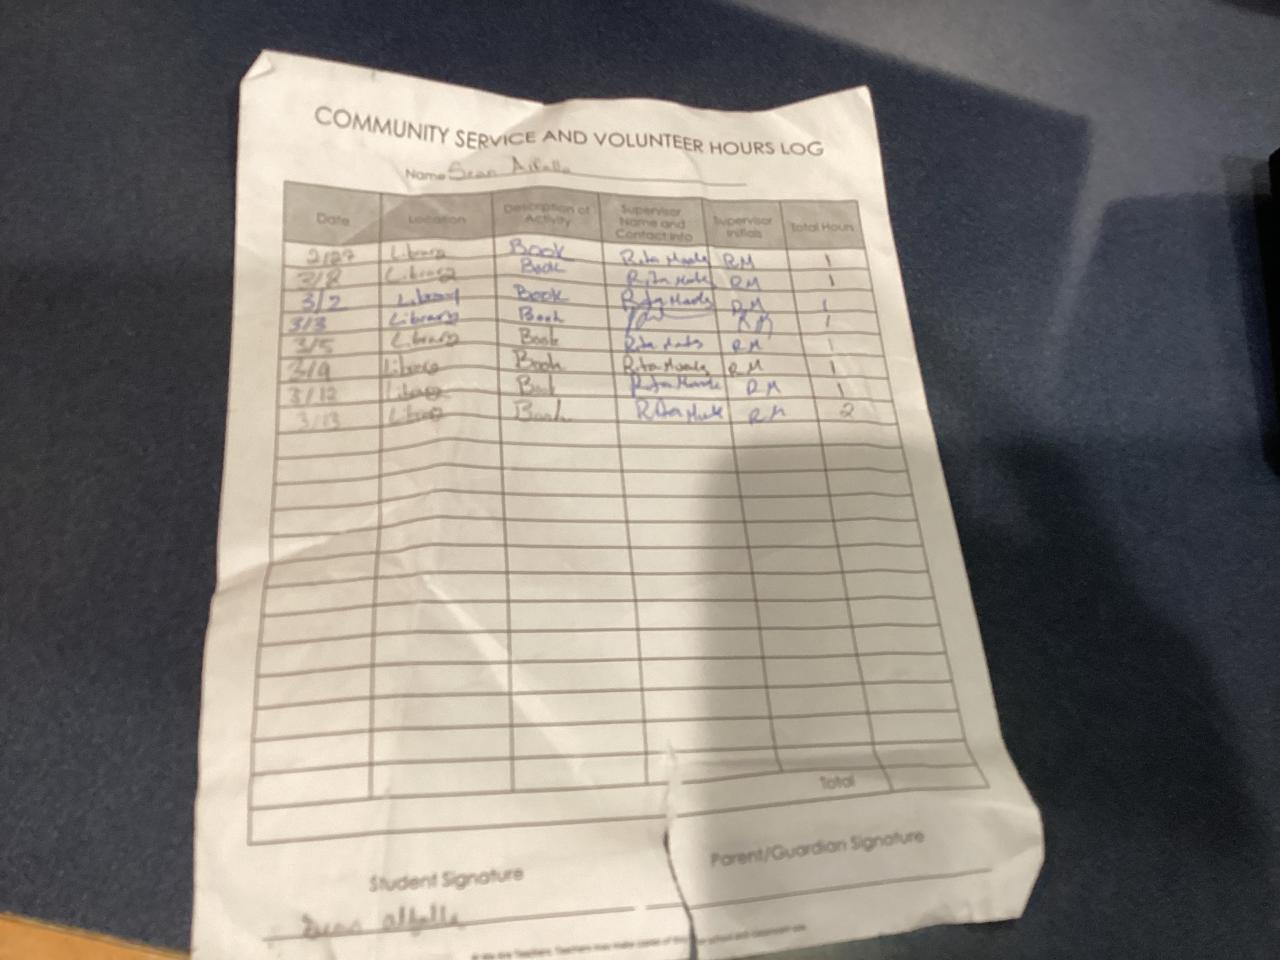 COMMUNITY SERVICE AND VOLUNTEER HOURS LOG
Name Sean
Date Location Description of Activity Supervisor Name and Contact Info Supervisor Initials Total Hours
2/27 Library Book Rita RM 1
Library Book Rita RM 1
3/2 Library Book Rita RM 1
3/3 Library Book RM 1
3/5 Library Book Rita RM 1
3/9 Library Book Rita RM 1
3/12 Library Book Rita RM 1
3/13 Library Book Rita RM 2
Total
Student Signature Parent/Guardian Signature
Sean
© We Are Teachers. Teachers may make copies of this for school and classroom use.